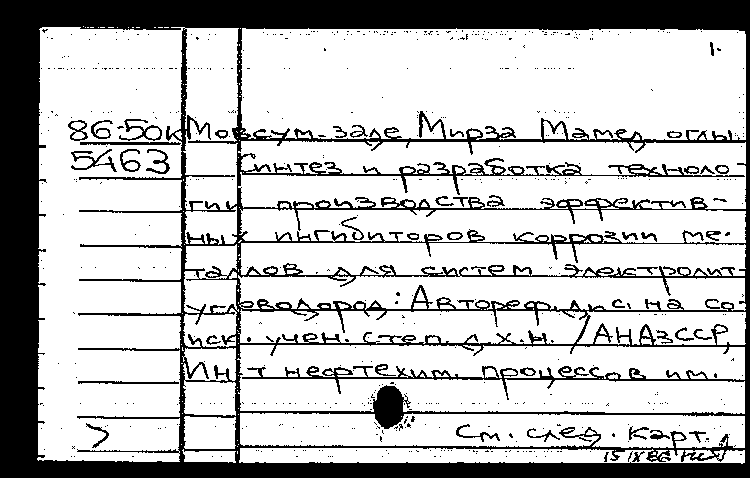 1.
86-50к Мовсум-заде, Мирза Мамед оглы
5463 Синтез и разработка техноло-
гии производства эффектив-
ных ингибиторов коррозии ме-
таллов для систем электролит-
углеводород: Автореф. дис. на со-
иск. учен. степ. д.х.н. / АНАзССР,
Ин-т нефтехим. процессов им.
См. след. карт.
15 IX 86